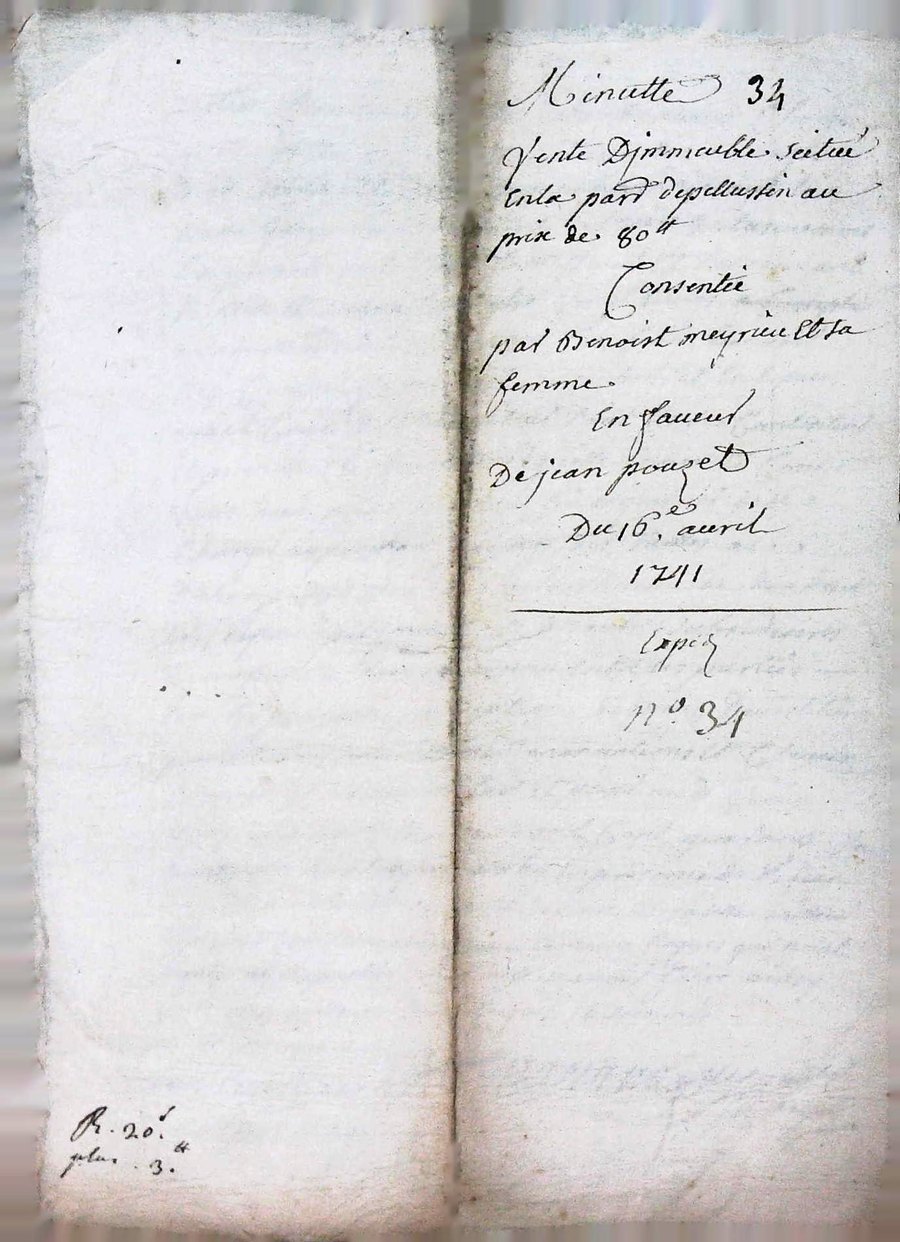 Minutte 34
Vente Djmmeuble scitué
Enla parr depellussin au
prix de 80lt
Consentie
par Benoist meyrieu Et sa
femme
En faveur
De jean pouzet
Du 16e. avril
1741
Expéé
no 34
R. 20s
plus 3lt